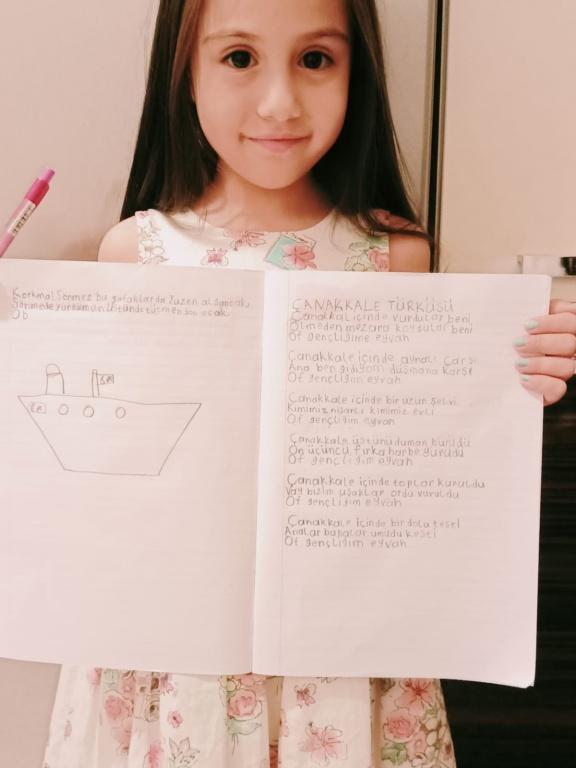 Korkma! Sönmez bu şafaklarda yüzen al sancak
Sönmede yurdumun üstünde tüten en son ocak
O b
ÇANAKKALE TÜRKÜSÜ
Çanakkal içinde vurdular beni
Ölmeden mezara koydular beni
Of gençliğime eyvah
Çanakkale içinde aynalı çarşı
Ana ben gidiyom düşmana karşı
Of gençliğim eyvah
Çanakkale içinde bir uzun selvi
Kimimiz nişanlı kimimiz evli
Of gençliğim eyvah
Çanakkale üstünü duman bürüdü
On üçüncü fırka harbe yürüdü
Of gençliğim eyvah
Çanakkale içinde toplar kuruldu
Vay bizim uşaklar ordu vuruldu
Of gençliğim eyvah
Çanakkale içinde bir dolu testi
Analar babalar umudu kesti
Of gençliğim eyvah